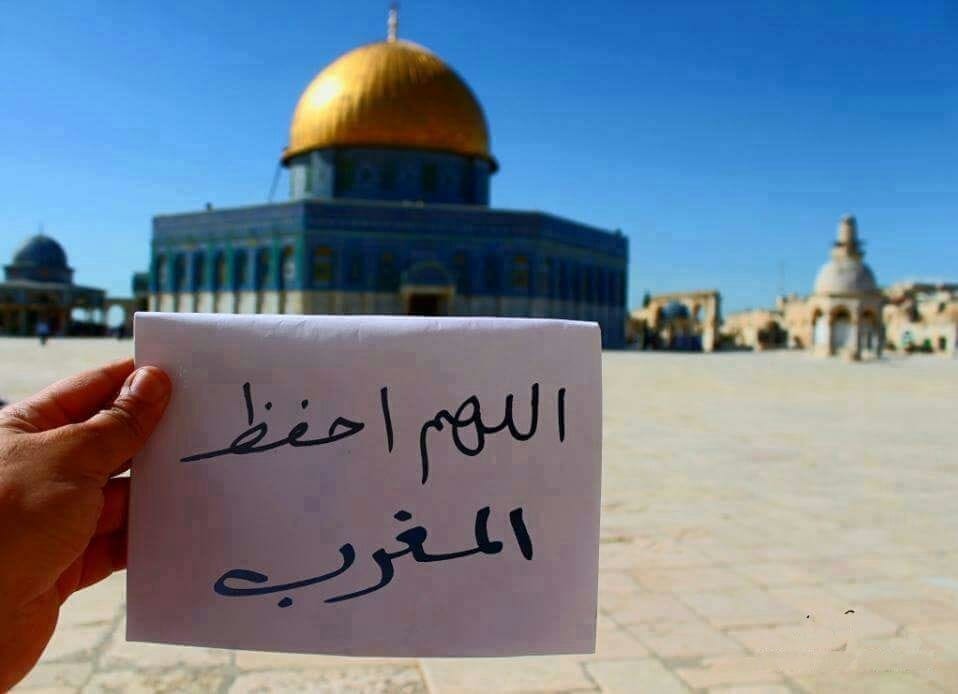 اللهم احفظ
المغرب